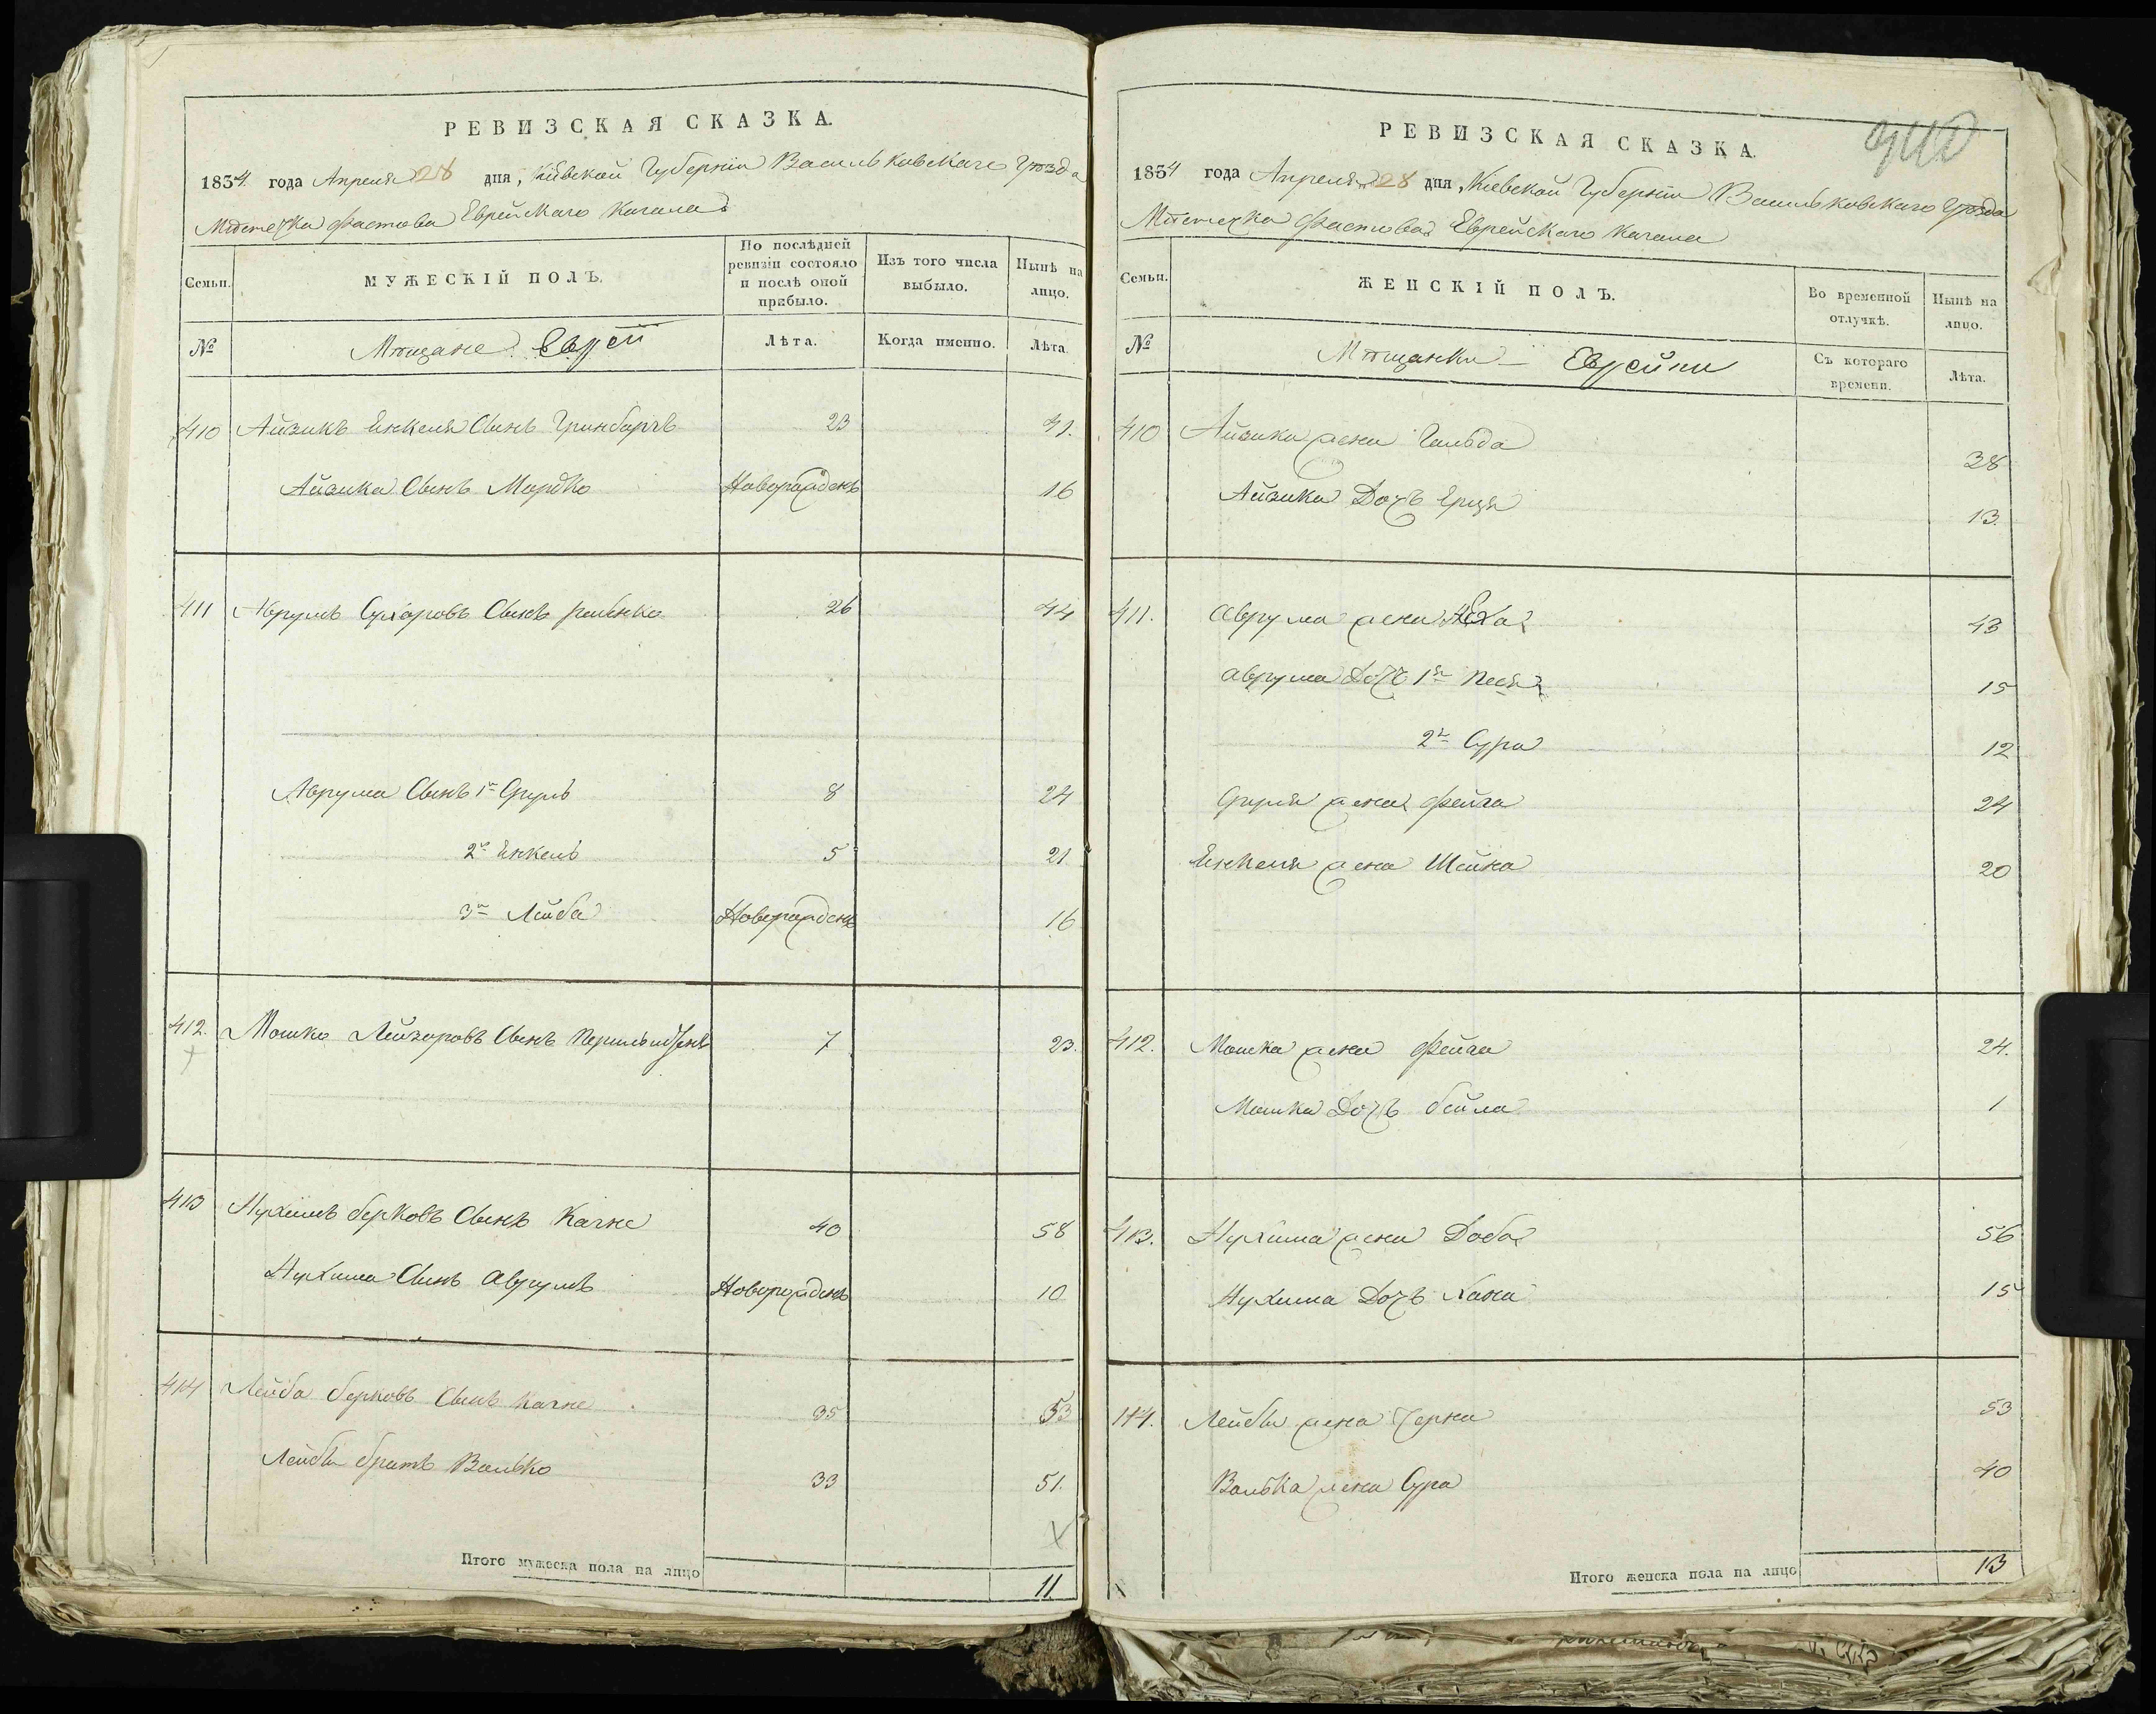 РЕВИЗСКАЯ СКАЗКА.
1834 года Апреля 28 дня, Кіевской Губерніи Васильковскаго Уѣзда
Мѣстечка Фастова Еврейскаго Кагала
Семьи. МУЖЕСКІЙ ПОЛЪ. По послѣдней ревизіи состояло и послѣ оной прибыло. Изъ того числа выбыло. Нынѣ на лицо.
№ Мѣщане Евреи Лѣта. Когда именно. Лѣта
410 Айзикъ Енкеля Сынъ Гринбаргъ 23 41.
Айзика Сынъ Мордко Новорожденъ 16
411 Аврумъ Сухаровъ Сынъ 26 44
Аврума Сынъ 1й Сруль 8 24
2й Енкель 5 21
3й Лейба Новорожденъ 16
412. Мошко Лейзоровъ Сынъ 7 23.
413 Нухимъ Берковъ Сынъ Кагне 40 58
Нухима Сынъ Аврумъ Новорожденъ 10
414 Лейба Берковъ Сынъ Кагне 35 53
Лейбы братъ Волько 33 51.
Итого мужеска пола на лицо 11
РЕВИЗСКАЯ СКАЗКА.
1834 года Апреля 28 дня, Кіевской Губерніи Васильковскаго Уѣзда
Мѣстечка Фастова Еврейскаго Кагала
Семьи. ЖЕНСКІЙ ПОЛЪ. Во временной отлучкѣ. Нынѣ на лицо.
№ Мѣщанки Еврейки Съ котораго времени. Лѣта.
410 Айзика жена Гольда 38
Айзика Дочь 13.
411. Аврума жена 43
Аврума Дочь 1я Песя 15
2я Сура 12
Сруля жена Фейга 24
Енкеля жена Шейна 20
412. Мошка жена Фейга 24.
Мошка Дочь Бейла 1
413. Нухима жена Доба 56
Нухима Дочь Хана 15
414. Лейбы жена Черна 53
Волька жена Сура 40
Итого женска пола на лицо 13